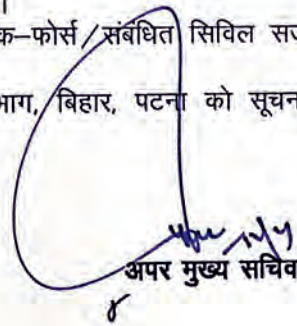 क–फोर्स/संबंधित सिविल सर्ज
भाग, बिहार, पटना को सूचन
अपर मुख्य सचिव